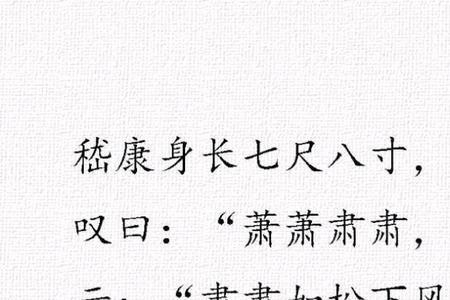 嵇康身长七尺八寸，
叹曰：“萧萧肃肃，
云：“肃肃如松下风